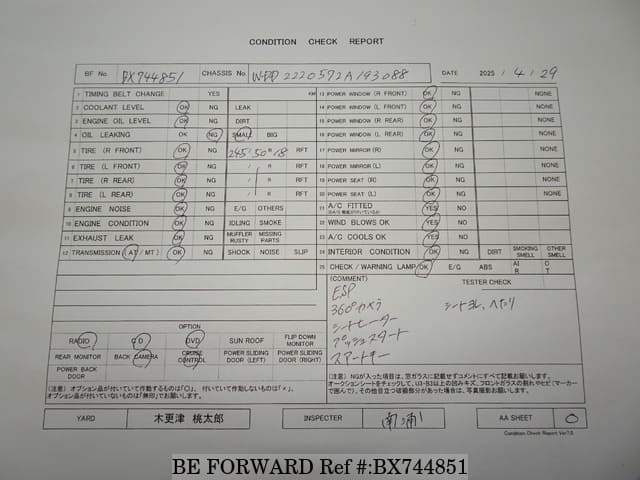 CONDITION CHECK REPORT
BF No. BX744851 CHASSIS No. WDD2220572A193088 DATE 2025 / 4 / 29
1 TIMING BELT CHANGE YES KM
2 COOLANT LEVEL OK NG LEAK
3 ENGINE OIL LEVEL OK NG DIRT
4 OIL LEAKING OK NG SMALL BIG
5 TIRE (R FRONT) OK NG 245/50 R 18 RFT
6 TIRE (L FRONT) OK NG / R RFT
7 TIRE (R REAR) OK NG / R RFT
8 TIRE (L REAR) OK NG / R RFT
9 ENGINE NOISE OK NG E/G OTHERS
10 ENGINE CONDITION OK NG IDLING SMOKE
11 EXHAUST LEAK OK NG MUFFLER RUSTY MISSING PARTS
12 TRANSMISSION (AT/MT) OK NG SHOCK NOISE SLIP
13 POWER WINDOW (R FRONT) OK NG NONE
14 POWER WINDOW (L FRONT) OK NG NONE
15 POWER WINDOW (R REAR) OK NG NONE
16 POWER WINDOW (L REAR) OK NG NONE
17 POWER MIRROR (R) OK NG NONE
18 POWER MIRROR (L) OK NG NONE
19 POWER SEAT (R) OK NG NONE
20 POWER SEAT (L) OK NG NONE
21 A/C FITTED YES NO
22 WIND BLOWS OK YES NO
23 A/C COOLS OK YES NO
24 INTERIOR CONDITION OK NG DIRT SMOKING SMELL OTHER SMELL
25 CHECK / WARNING LAMP OK E/G ABS AIR OT
(COMMENT) TESTER CHECK
ESP
360°カメラ
シートヒーター
プッシュスタート
スマートキー
シートヨレ、ヘタリ
OPTION
RADIO CD DVD SUN ROOF FLIP DOWN MONITOR
REAR MONITOR BACK CAMERA CRUISE CONTROL POWER SLIDING DOOR (LEFT) POWER SLIDING DOOR (RIGHT)
POWER BACK DOOR
(注意) オプション品が付いていて作動するものは「○」、付いていて作動しないものは「×」、
オプション品が付いていないものは「無印」でお願いします。
(注意) NGが入った項目は、窓ガラスに被せずコメントにすべて記載お願いします。
オークションシートをチェックして、U3・B3以上の凹みキズ、フロントガラスの割れやヒビ(マーカー
で囲んで)、その他目立つ破損部分があった場合は、写真撮影お願いします。
YARD 木更津 桃太郎 INSPECTER 南浦 AA SHEET 0
Condition Check Report Ver7.0
BE FORWARD Ref #:BX744851